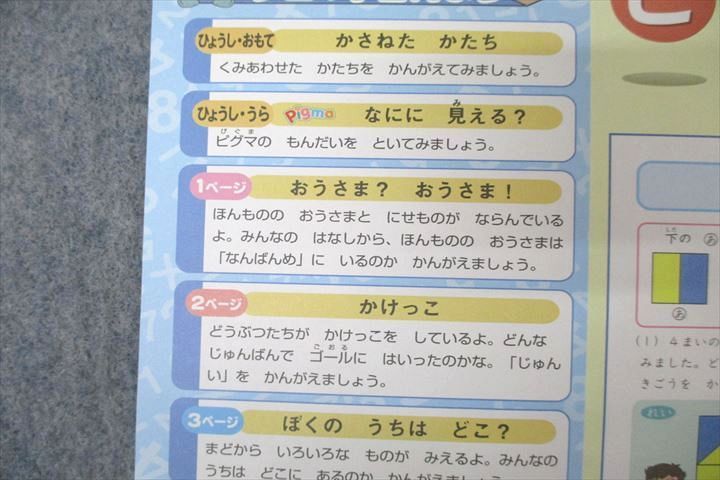 ひょうし・おもて　かさねた　かたち
くみあわせた　かたちを　かんがえてみましょう。
ひょうし・うら　Pigma　なにに　見える？
み
ピグマの　もんだいを　といてみましょう。
ぴぐま
1ページ　おうさま？　おうさま！
ほんものの　おうさまと　にせものが　ならんでいる
よ。みんなの　はなしから、ほんものの　おうさまは
「なんばんめ」に　いるのか　かんがえましょう。
2ページ　かけっこ
どうぶつたちが　かけっこを　しているよ。どんな
じゅんばんで　ゴールに　はいったのかな。「じゅん
ごおる
い」を　かんがえましょう。
3ページ　ぼくの　うちは　どこ？
まどから　いろいろな　ものが　みえるよ。みんなの
うちは　どこに　あるのか　かんがえましょう。
下の　あ
した
あ
(1) 4まいの
みました。ど
きごうを　か
れい